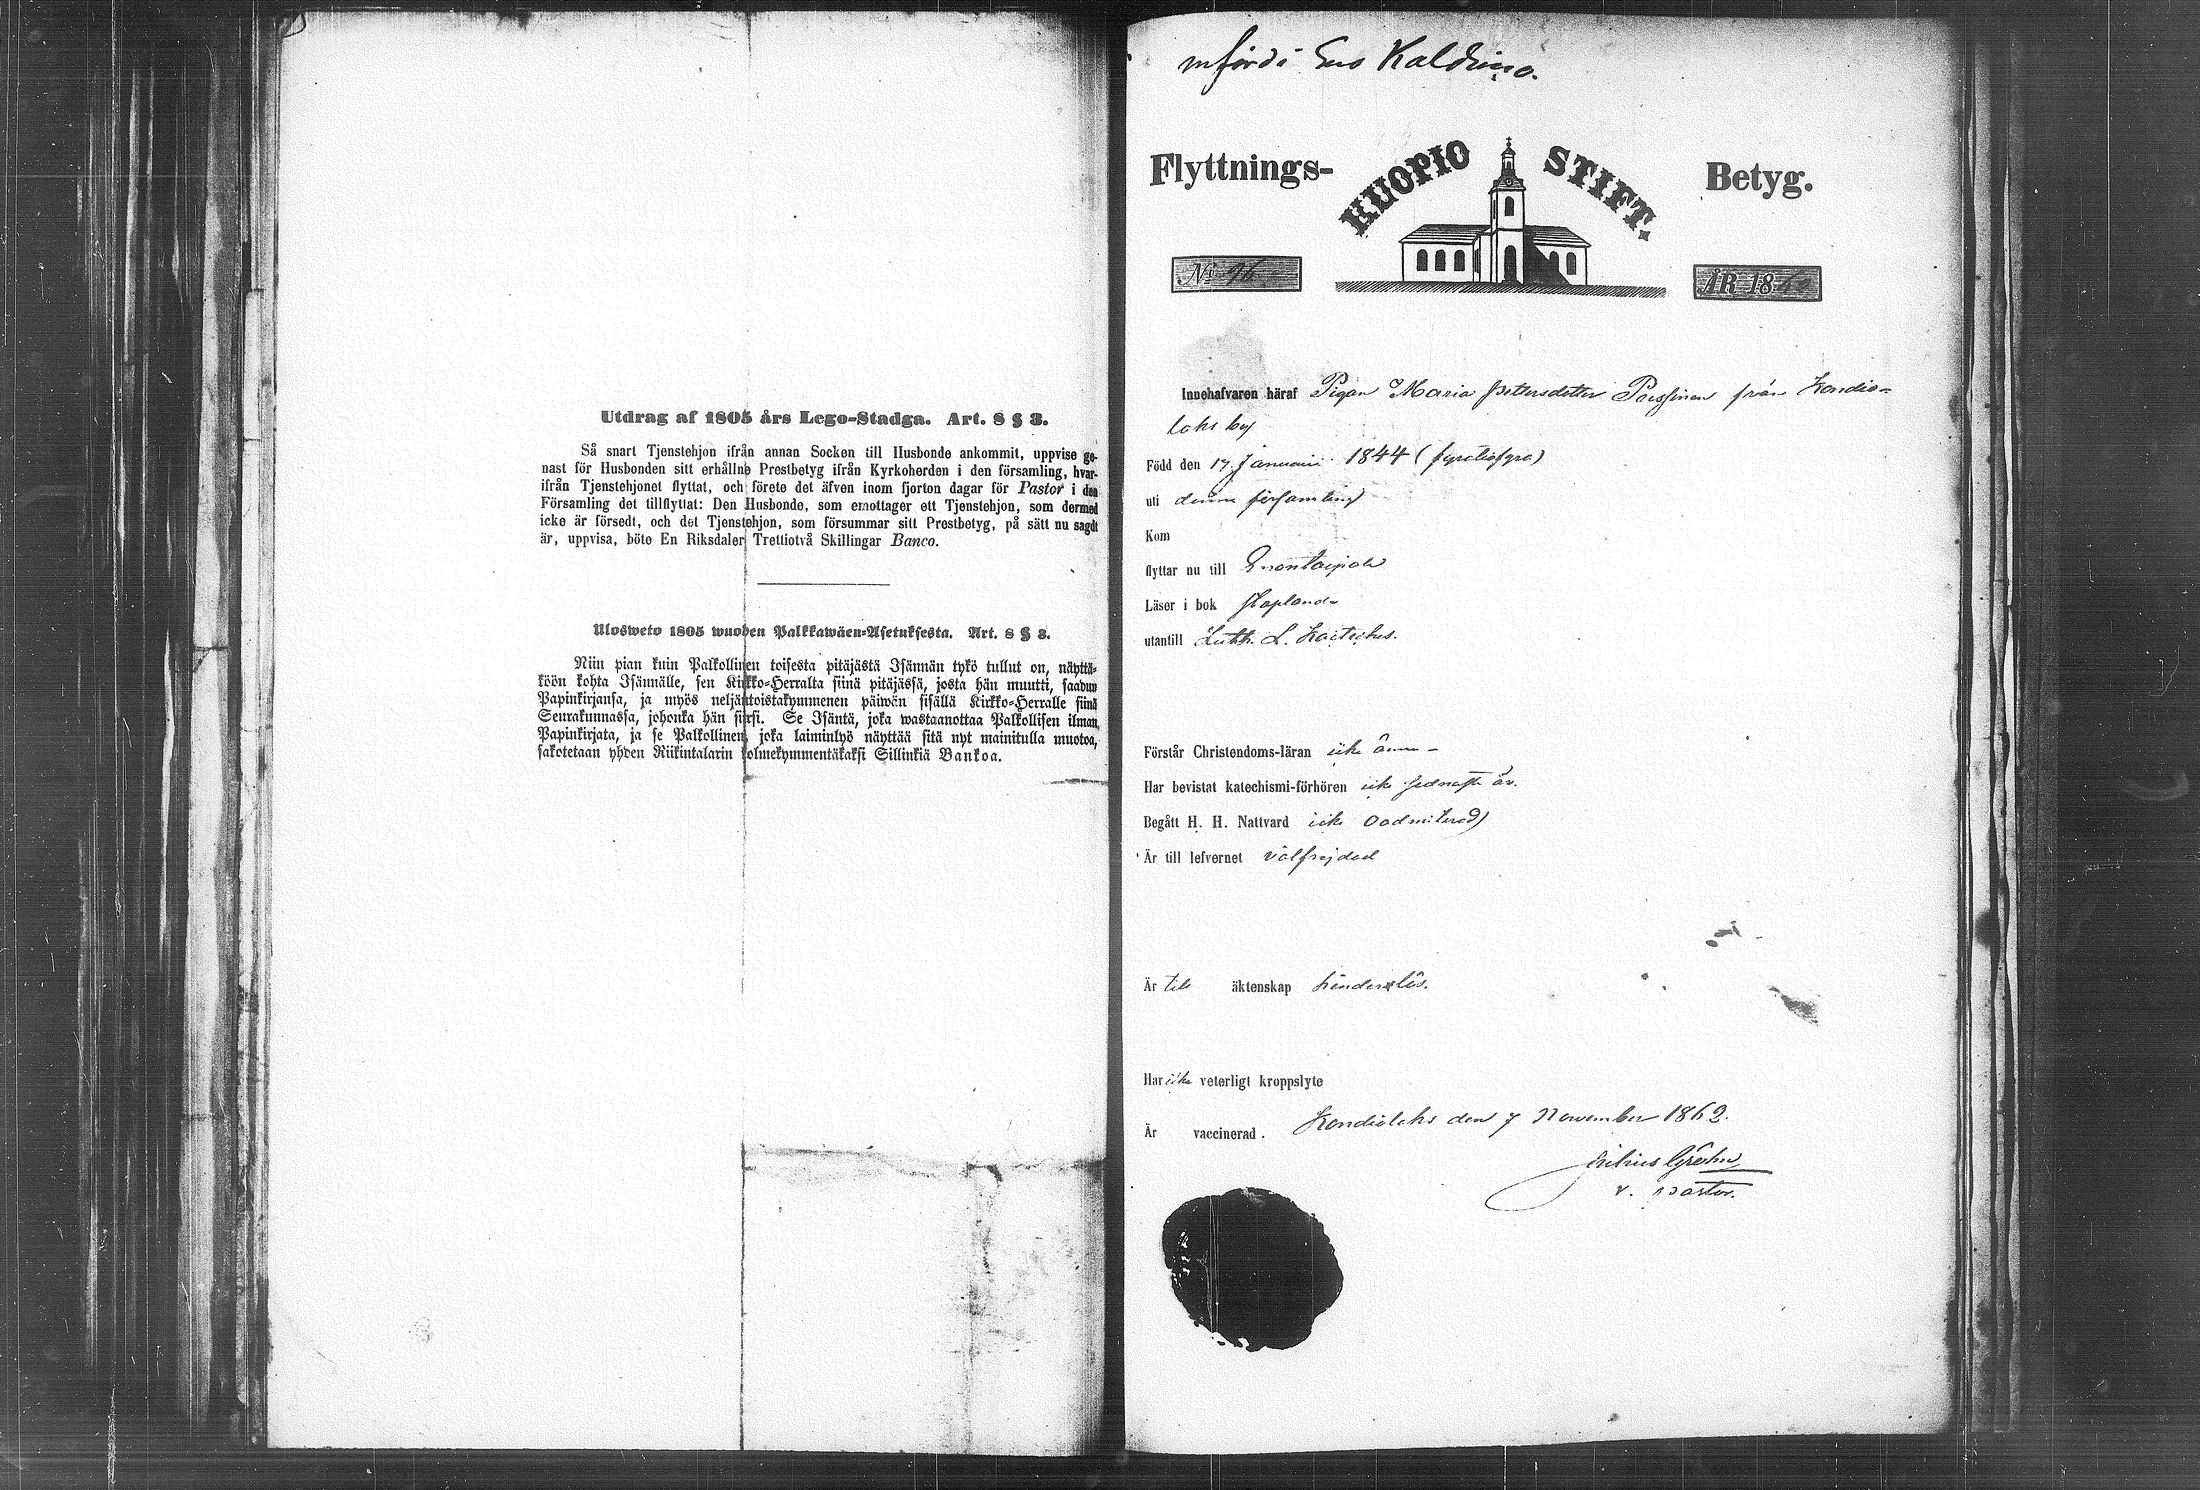 Utdrag af 1805 års Lego-Stadga. Art. 8 § 3.
Så snart Tjenstehjon ifrån annan Socken till Husbonde ankommit, uppvise ge-
nast för Husbonden sitt erhållne Prestbetyg ifrån Kyrkoherden i den församling, hvar-
ifrån Tjenstehjonet flyttat, och förete det äfven inom fjorton dagar för Pastor i den
Församling det tillflyttat: Den Husbonde, som emottager ett Tjenstehjon, som dermed
icke är försedt, och det Tjenstehjon, som försummar sitt Prestbetyg, på sätt nu sagdt
är, uppvisa, böte En Riksdaler Trettiotvå Skillingar Banco.
Ulosweto 1805 wuoden Palkkawäen-Asetuksesta. Art. 8 § 3.
Niin pian kuin Palkollinen toisesta pitäjästä Isännän tykö tullut on, näyttä-
köön kohta Isännälle, sen Kirkko-Herralta siinä pitäjässä, josta hän muutti, saadun
Papinkirjansa, ja myös neljäntoistakymmenen päiwän sisällä Kirkko-Herralle siinä
Seurakunnassa, johonka hän siirsi. Se Isäntä, joka wastaanottaa Palkollisen ilman
Papinkirjata, ja se Palkollinen, joka laiminlyö näyttää sitä nyt mainitulla muotoa,
sakotetaan yhden Riikintalarin kolmekymmentäkaksi Sillinkiä Bankoa.
Flyttnings- KUOPIO STIFT. Betyg.
No 96 ÅR 186
Innehafvaren häraf Pigan Maria Pettersdotter från Kondio-
laks by
Född den 17 Januari 1844 (fyratiofyra)
uti denna församling
Kom
flyttar nu till
Läser i bok
utantill Luth. L.
Förstår Christendoms-läran icke ännu
Har bevistat katechismi-förhören icke sednaste år.
Begått H. H. Nattvard icke oadmitterad
Är till lefvernet välfrejdad
Är till äktenskap hinderslös.
Har icke veterligt kroppslyte
Är vaccinerad. Kondiolaks den 7 November 1862.
v. Pastor.